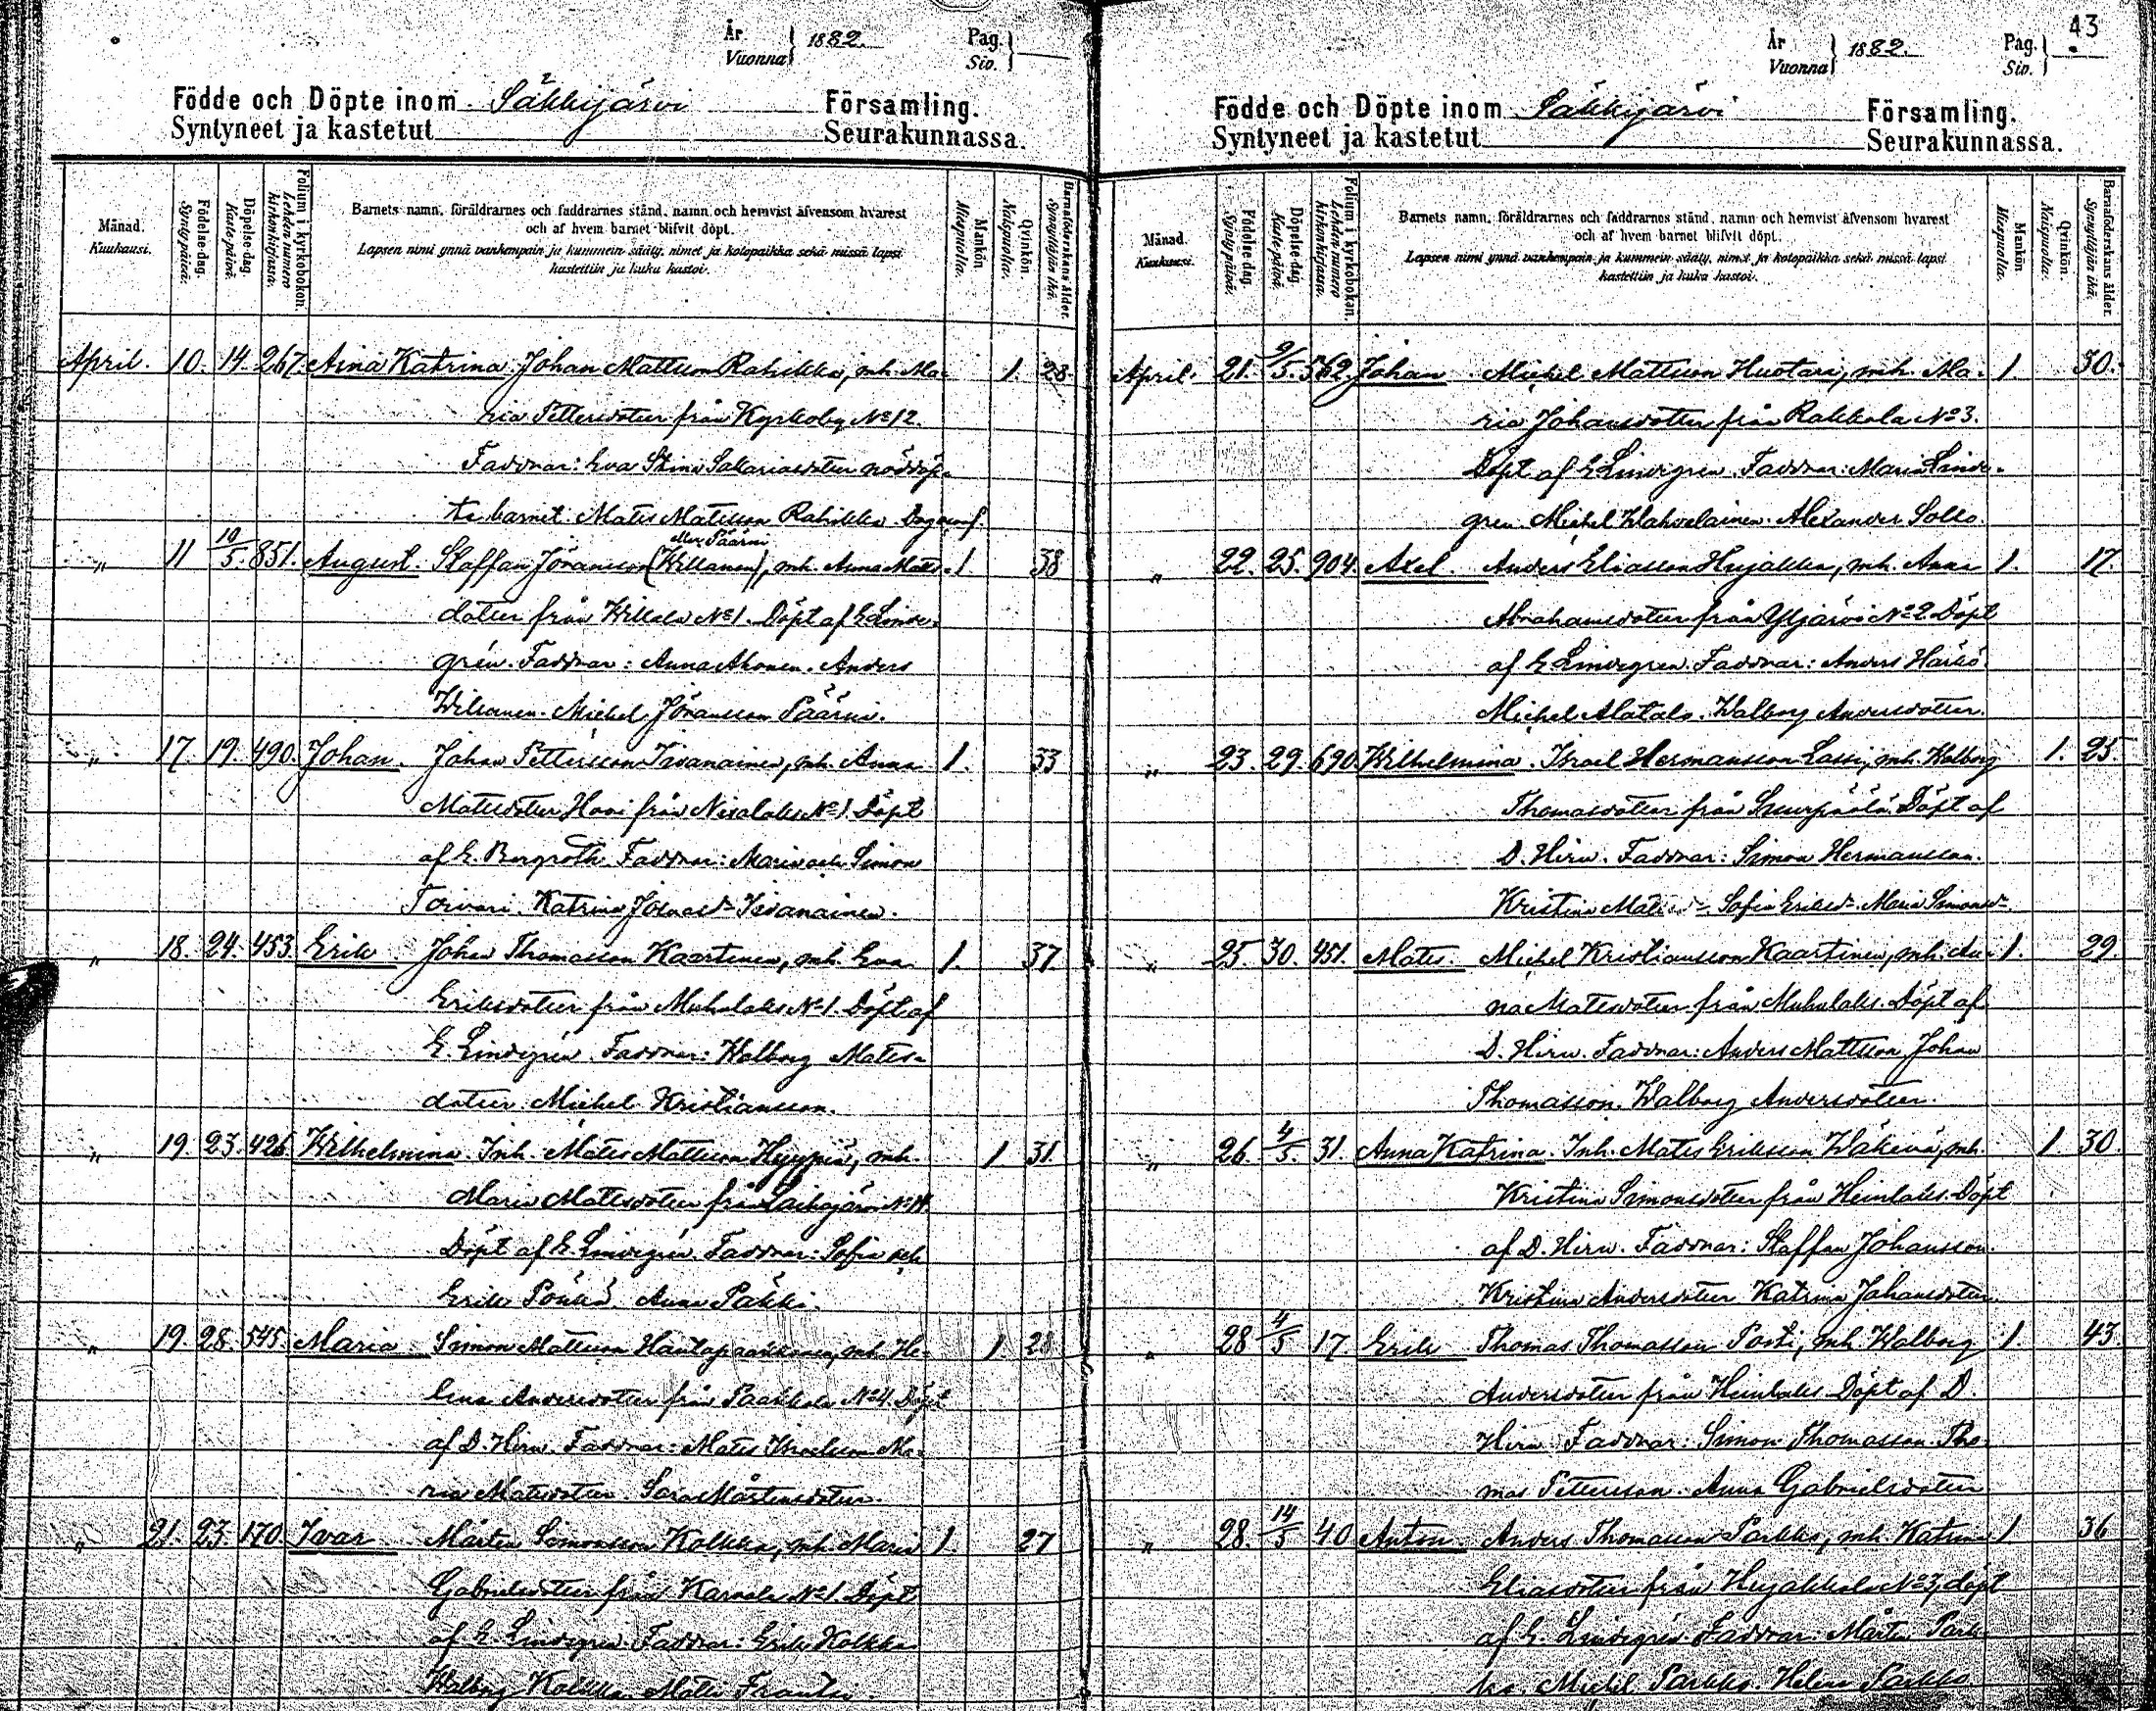 År
Vuonna } 1882.
Pag.
Siv. }
Födde och Döpte inom Säkkijärvi Församling.
Syntyneet ja kastetut Seurakunnassa.
Månad.
Kuukausi.
Födelse-dag.
Syntypäivä.
Döpelse-dag.
Kaste-päivä.
Folium i kyrkobokon.
Lehden numero
kirkonkirjassa.
Barnets namn, föräldrarnes och faddrarnes stånd, namn och hemvist äfvensom hvarest
och af hvem barnet blifvit döpt.
Lapsen nimi ynnä vanhempain ja kummein sääty, nimet ja kotopaikka sekä missä lapsi
kastettiin ja kuka kastoi.
Mankön.
Miespuolia.
Qvinkön.
Naispuolia.
Barnaföderskans ålder.
Synnyttäjän ikä.
April. 10. 14. 267. Aina Katrina. Johan Mattsson Rahikka, mh. Ma- 1. 28
ria Pettersdotter från Kyrkoby No 12.
Faddrar: Eva Stina Sakariasdotter nöddöp-
te barnet. Mats Matsson Rahikka.
" 11 10/5. 851. August. Staffan Jöransson (Killanen), mh. Anna Mats- 1 38
eller Päärni
dotter från Killala No 1. Döpt af E. Lind-
gren. Faddrar: Anna Ahonen. Anders
Michel Jöransson Päärni.
" 17. 19. 490. Johan. Johan Pettersson mh. Anna 1. 33
Matsdotter från No 1. Döpt
af E. Bergroth. Faddrar: Maria och Simon
Toivari. Katrina
" 18. 24. 453. Erik Johan Thomasson Kaartinen, mh. Eva 1. 37.
Eriksdotter från Muhulaks No 1. Döpt af
E. Lindgren. Faddrar: Walborg Mats-
dotter. Michel Kristiansson.
" 19. 23. 426. Wilhelmina. Inh. Mats Mattsson Hyyppiä, mh. 1 31.
Maria Matsdotter från
Döpt af E. Lindgren. Faddrar: Sofia och
Erik Pönkä. Anna Pakki.
" 19. 28. 545. Maria Simon Mattsson mh. He- 1. 28
lena Andersdotter från Paakkola No 4. Döpt
af D. Hirn. Faddrar: Mats Israelsson. Ma-
ria Matsdotter. Sara Mårtensdotter.
" 21. 23. 170. Ivar Mårten Simonsson Kolkka, mh. Maria 1. 27
Gabrielsdotter från Karnala No 1. Döpt
af E. Lindgren. Faddrar: Erik Kolkka
Walborg Kolkka. Mats Frantsi.
43
År
Vuonna } 1882.
Pag.
Siv. }
Födde och Döpte inom Säkkijärvi Församling.
Syntyneet ja kastetut Seurakunnassa.
Månad.
Kuukausi.
Födelse-dag.
Syntypäivä.
Döpelse-dag.
Kaste-päivä.
Folium i kyrkobokan.
Lehden numero
kirkonkirjassa.
Barnets namn, föräldrarnes och faddrarnes stånd, namn och hemvist äfvensom hvarest
och af hvem barnet blifvit döpt.
Lapsen nimi ynnä vanhempain ja kummein sääty, nimet ja kotopaikka sekä missä lapsi
kastettiin ja kuka kastoi.
Mankön.
Miespuolia.
Qvinkön.
Naispuolia.
Barnaföderskans ålder.
Synnyttäjän ikä.
April. 21. 9/5. 562. Johan Michel Mattsson Huotari, mh. Ma- 1. 30.
ria Johansdotter från Rakkola No 3.
Döpt af E. Lindgren. Faddrar: Maria Lind-
gren. Michel Wahvelainen. Alexander Sollo.
" 22. 25. 904. Axel. Anders Eliasson Hujakka, mh. Anna 1. 17.
Abrahamsdotter från Yljärvi No 2. Döpt
af E. Lindgren. Faddrar: Anders Härkö
Michel Alatalo. Walborg Andersdotter.
" 23. 29. 690. Wilhelmina. Israel Hermansson Lassi, mh. Walborg 1. 25.
Thomasdotter från Suurpäälä. Döpt af
D. Hirn. Faddrar: Simon Hermansson.
Kristina Matsdr. Sofia Eriksdr. Maria Simonsdr.
" 25. 30. 451. Mats. Michel Kristiansson Kaartinen, mh. An- 1. 29.
na Matsdotter från Muhulaks. Döpt af
D. Hirn. Faddrar: Anders Mattsson. Johan
Thomasson. Walborg Andersdotter.
" 26. 4/5. 31. Anna Katrina. Inh. Mats Eriksson Wäkevä, mh. 1. 30.
Kristina Simonsdotter från Heinlaks. Döpt
af D. Hirn. Faddrar: Staffan Johansson.
Kristina Andersdotter. Katrina Johansdotter.
" 28 4/5 17. Erik Thomas Thomasson Posti, mh. Walborg 1. 43.
Andersdotter från Heinlaks. Döpt af D.
Hirn. Faddrar: Simon Thomasson. Tho-
mas Pettersson. Anna Gabrielsdotter
" 28. 14/5 40 Anton. Anders Thomasson Parkko, mh. Katrina 1. 36
Eliasdotter från Hujakkala No 3, döpt
af E. Lindgren. Faddrar: Mårten Park-
ko. Michel Parkko. Helena Parkko.